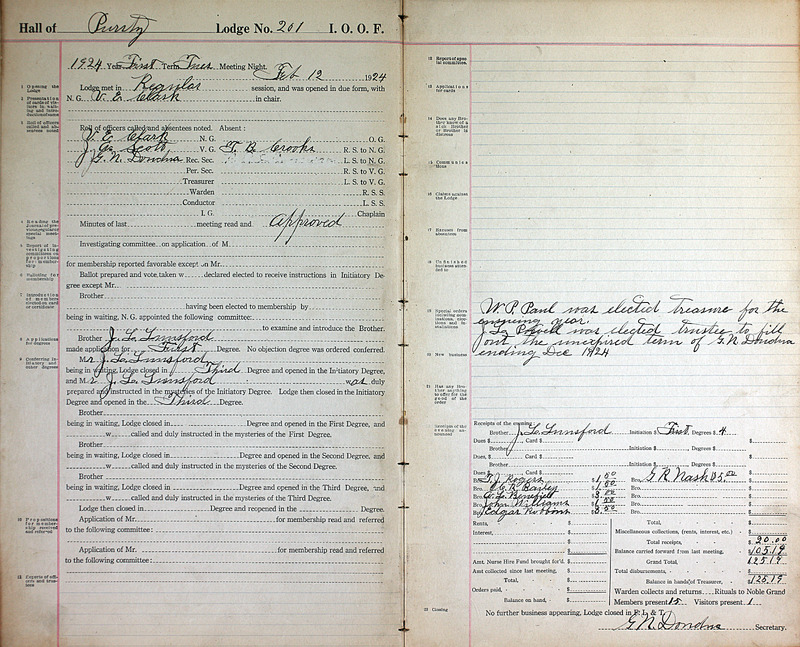 Hall of Purity Lodge No. 201 I. O. O. F.
1924 Year First Term Tues Meeting Night. Feb 12 1924
1 Opening the Lodge
Lodge met in Regular session, and was opened in due form, with
N. G. V. E. Clark in chair.
Roll of officers called and absentees noted. Absent:
V. E. Clark N. G. O. G.
Scott, V. G. T. B. Crooks R. S. to N. G.
G. N. Dondna Rec. Sec. L. S. to N. G.
Per. Sec. R. S. to V. G.
Treasurer L. S. to V. G.
Warden R. S. S.
Conductor L. S. S.
I. G. Chaplain
Minutes of last meeting read and approved
Investigating committee on application of M
for membership reported favorable except on Mr.
Ballot prepared and vote taken w declared elected to receive instructions in Initiatory De-
gree except Mr.
Brother
having been elected to membership by
being in waiting, N. G. appointed the following committee:
to examine and introduce the Brother.
8 Applications for degrees
Brother J. L. Lunsford
made application for First Degree. No objection degree was ordered conferred.
Mr J. L. Lunsford
being in waiting, Lodge closed in Third Degree and opened in the Initiatory Degree,
and Mr J. L. Lunsford was duly
prepared and instructed in the mysteries of the Initiatory Degree. Lodge then closed in the Initiatory
Degree and opened in the Third Degree.
Brother
being in waiting, Lodge closed in Degree and opened in the First Degree, and
w called and duly instructed in the mysteries of the First Degree.
Brother
being in waiting, Lodge closed in Degree and opened in the Second Degree, and
w called and duly instructed in the mysteries of the Second Degree.
Brother
being in waiting, Lodge closed in Degree and opened in the Third Degree, and
w called and duly instructed in the mysteries of the Third Degree.
Lodge then closed in Degree and reopened in the Degree.
Application of Mr. for membership read and referred
to the following committee:
Application of Mr. for membership read and referred
to the following committee:
12 Report of special committees.
13 Applications for cards
14 Does any Brother know of a sick Brother or Brother in distress
15 Communications
16 Claims against the Lodge
17 Excuses from absentees
18 Unfinished business
W. P. Paul was elected treasure for the
ensuing year.
Powell was elected trustee to fill
out the unexpired term of G. N. Dondna
20 New business
ending Dec 1924
21 Has any Brother anything to offer for the good of the order
Receipts of the evening
Brother J. L. Lunsford Initiation $ First Degrees $ 4
Dues $ Card $ $
Brother Initiation $ Degrees $
Dues, $ Card $ $
Brother Initiation $ Degrees $
Dues $ Card $ $
Bro. T. J. Rogers $ 1.50 Bro. G. R. Nash $5.00
Bro. Bailey $ 1.50 Bro. $
Bro. Benefiel $ 3.00 Bro. $
Bro. John Williams $ 1.50 Bro. $
Bro. Edgar $ 3.50 Bro. $
Rents, $ Total, $
Interest, $ Miscellaneous collections, (rents, interest, etc.) $
Total receipts, $ 20.00
Balance carried forward from last meeting, 10519
Amt. Nurse Hire Fund brought for'd. $ Grand Total, $ 12519
Amt collected since last meeting, $ Total disbursements, $
Total, $ Balance in hands of Treasurer, $ 12519
Orders paid, $ Warden collects and returns Rituals to Noble Grand
Balance on hand, $ Members present 15 Visitors present 1
22 Closing
No further business appearing, Lodge closed in F. L. & T.
G. N. Dondna Secretary.